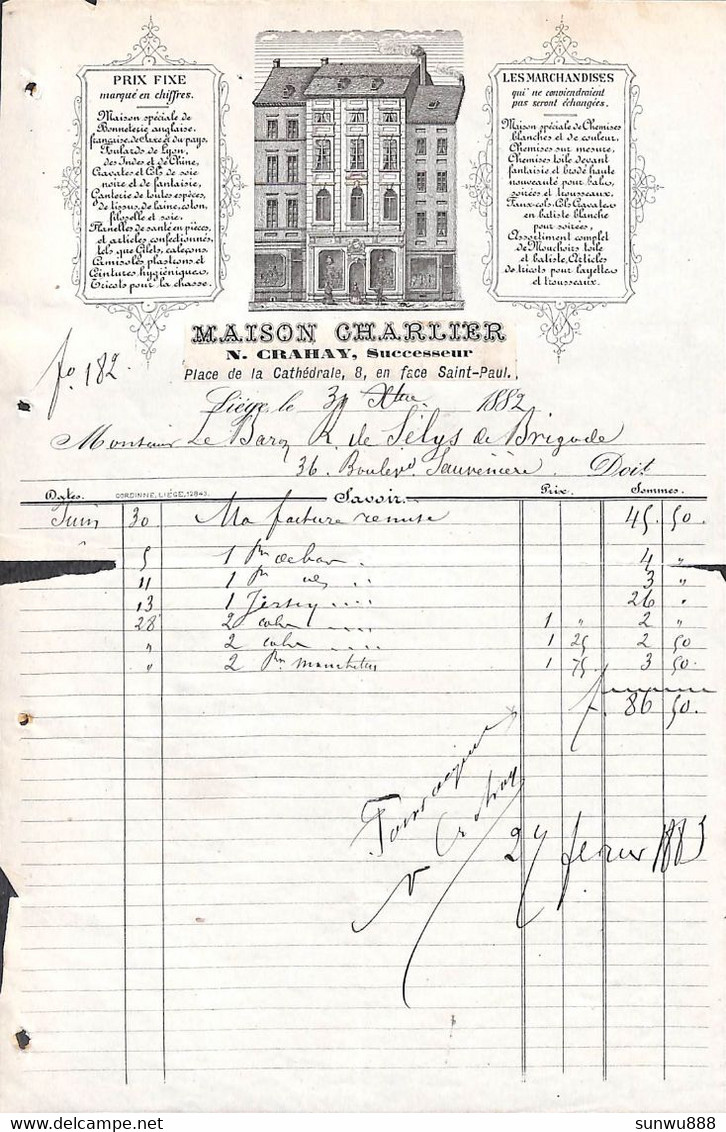 PRIX FIXE
marqué en chiffres.
Maison spéciale de
Bonneterie anglaise,
française, de Saxe & du pays,
Foulards de Lyon,
des Indes et de Chine,
Cravates et Cols de soie
noire et de fantaisie,
Ganterie de toutes espèces,
de tissus, de laine, coton,
filoselle et soie,
Flanelles de santé en pièces,
et articles confectionnés,
tels que Gilets, caleçons,
Camisoles, plastrons et
Ceintures, hygiéniques,
Tricots pour la chasse.
LES MARCHANDISES
qui ne conviendraient
pas seront échangées.
Maison spéciale de Chemises
blanches et de couleur,
Chemises sur mesure,
Chemises toile devant
fantaisie et brodé haute
nouveauté pour bals,
soirées et trousseaux.
Faux-cols-Cols Cravates
en batiste blanche
pour soirées,
Assortiment complet
de Mouchoirs toile
et batiste, Articles
de tricots pour layettes
et trousseaux.
MAISON CHARLIER
N. CRAHAY, Successeur
Place de la Cathédrale, 8, en face Saint-Paul.
fo 182.
Liége, le 31 Xbre 1882
Monsieur Le Baron R. de Sélys de Brigode
36 Boulevd Sauvenière Doit
Dates. GORDINNE, LIÉGE, 12843. Savoir. Prix. Sommes.
Juin 30 Ma facture remise 45. 50
5 1 4 "
11 1 3 "
13 1 Jersey 26 "
28 2 cols 1 " 2 "
" 2 cols 1 25 2 50
" 2 manchettes 1 75 3 50
f. 86 50
Pour acquit
N Crahay
27 fevrier 1883
sunwu888